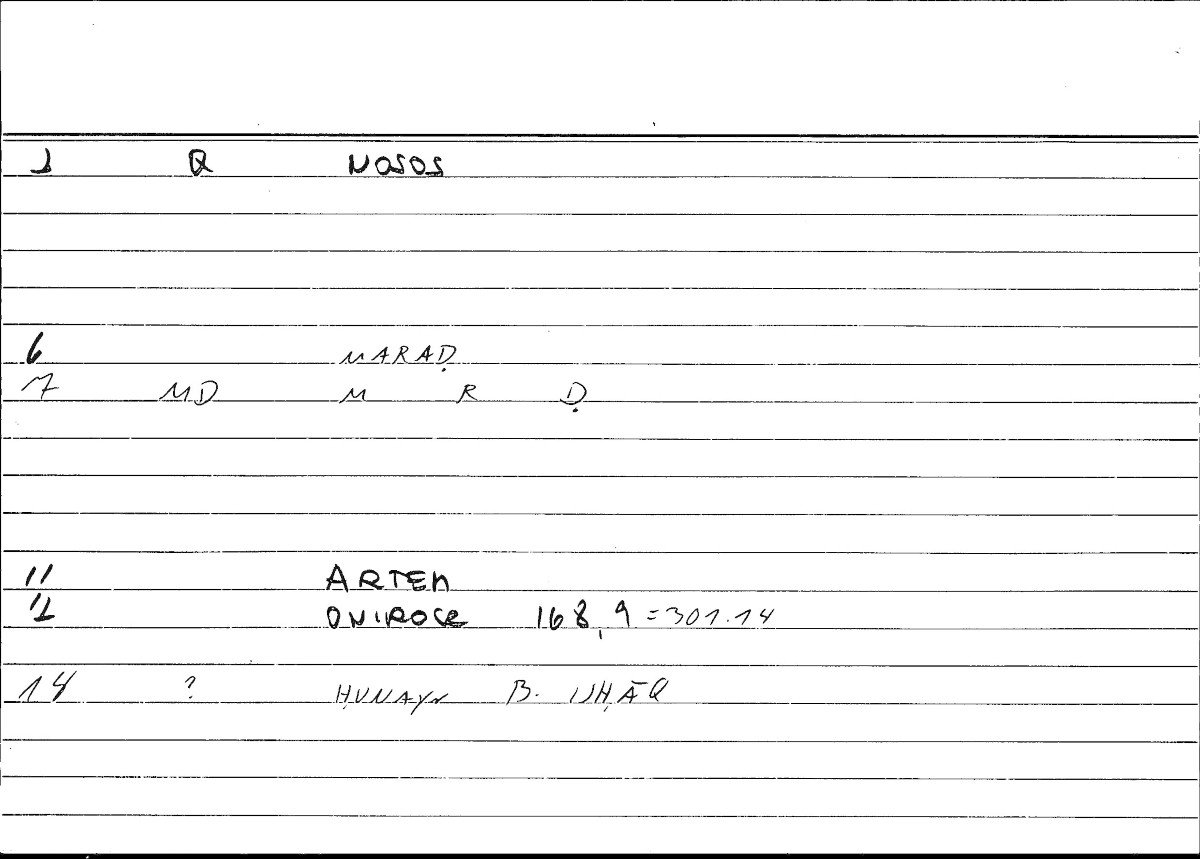 1 Q NOSOS
6 MARAḌ
7 MD M R Ḍ
11 ARTEM
12 ONIROCR 168,9 = 301.14
14 ? ḤUNAYN B. ISḤĀQ